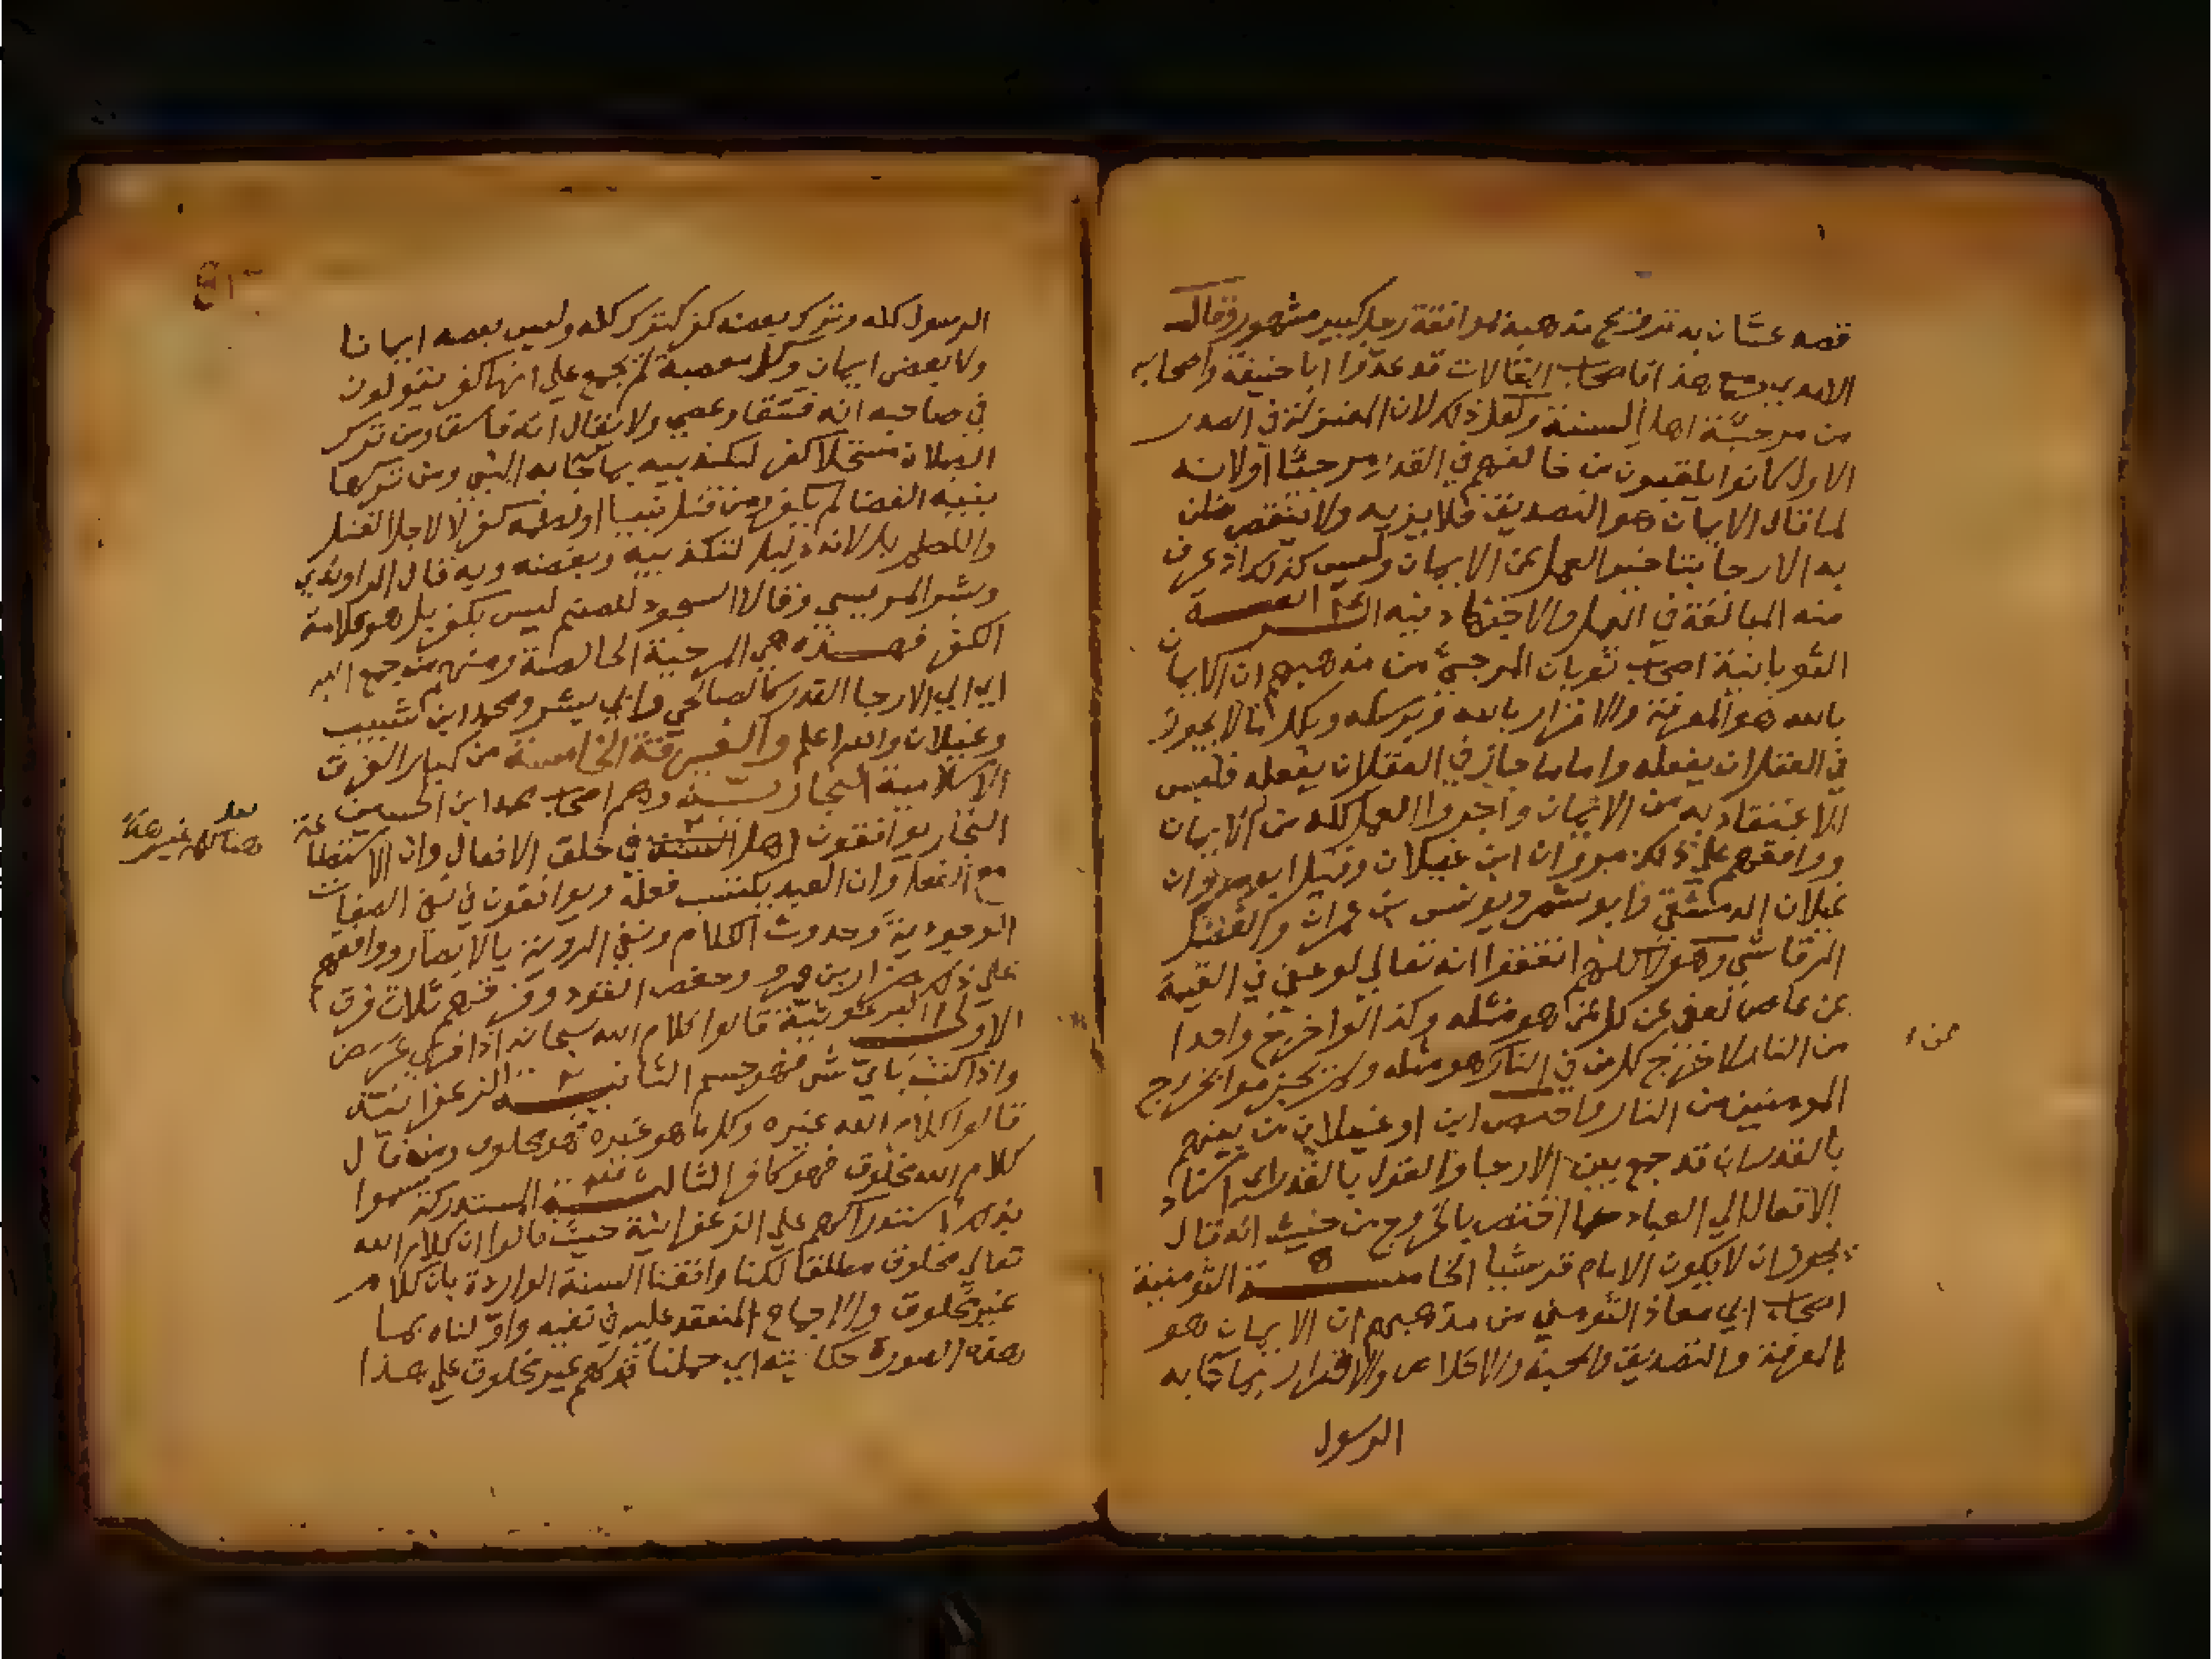 قصد غسّان به ترويج مذهبه بموافقة رجل كبير مشهور وقال
الامدي ومع هذا فاصحاب المقالات قد عدّوا ابا حنيفة واصحابه
من مرجئة اهل السنة ولعل ذلك لان المعتزلة في الصدر
الاول كانوا يلقبون من خالفهم في القدر مرجئا اولانه
لما قال الايمان هو التصديق فلا يزيد ولا ينقص ظن
به الارجا بتاخير العمل عن الايمان وليس كذلك اذ عرف
منه المبالغة في العمل والاجتهاد فيه الرابعة
الثوبانية اصحاب ثوبان المرجئ من مذهبهم ان الايمان
بالله هو المعرفة والاقرار بالله وبرسله وبكل ما لا يجوز
في العقل ان يفعله واما ما جاز في العقل ان يفعله فليس
الاعتقاد به من الايمان واخروا العمل كله من الايمان
ووافقهم على ذلك مروان ابن غيلان وقيل ابو مروان
غيلان الدمشقي وابو شمر ويونس بن عمران والفضل
الرقاشي وهولا كلهم اتفقوا انه تعالي لو عفى في القيمة
عن عاص لعفى عن كل من هو مثله وكذا لو اخرج واحدا
من النار لاخرج كل من في النار هو مثله ولم يجزموا بخروج
المومنين من النار واختص ابن او غيلان من بينهم
بالقدر اذ قد جمع بين الارجا والقول بالقدر اي اسناد
الافعال الي العباد وبما اختص بالخروج من حيث انه قال
يجوز ان لا يكون الامام قرشيا الخامسة الثومنية
اصحاب ابي معاذ الثومني من مذهبهم ان الايمان هو
المعرفة والتصديق والمحبة والاخلاص والاقرار بما جا به
الرسول
الرسول كله وترك بعضه كفر كترك كله وليس بعضه ايمانا
ولا بعض ايمان وكل معصية لم يجمع علي انها كفر يقولون
في صاحبه انه فسق وعصي ولا يقال انه فاسق ومن ترك
الصلاة مستحلا كفر لتكذيبه بما جا به النبي ومن تركها
بنية القضا لم يكفر ومن قتل نبيا او لطمه كفر لا لاجل القتل
واللطم بل لانه دليل لتكذيبه وبغضه وبه قال الراوندي
وبشر المريسي وقالا السجود للصنم ليس بكفر بل هو علامة
الكفر فهذه هي المرجية الخالصة ومنهم من جمع اليه
اي الي الارجا القدر كالصالحي وابي شمر ومحمد ابن شبيب
وغيلان والله اعلم والفرقة الخامسة من كبار الفرق
الاسلامية النجارية وهم اصحاب محمد ابن الحسين
النجار يوافقون اهل السنة في خلق الافعال وان الاستطاعة
مع الفعل وان العبد يكتسب فعله ويوافقون في نفي الصفات
الوجودية وحدوث الكلام ونفي الروية بالابصار ووافقهم
على ذلك ضرار بن عمرو وحفص الفرد وفرقهم ثلاث فرق
الاولى البرغوثية قالوا كلام الله سبحانه اذا قرئ عرض
واذا كتب باي شي فهو جسم الثانية الزعفرانية
قالوا كلام الله غيره وكل ما هو غيره فهو مخلوق ومن قال
كلام الله مخلوق فهو كافر الثالثة المستدركة سموا
بذلك لاستدراكهم علي الزعفرانية حيث قالوا ان كلام الله
تعالي مخلوق مطلقا لكنا وافقنا السنة الواردة بان كلام
غير مخلوق والاجماع المنعقد عليه في نفيه واوّلناه بما
هذه الصورة حكايته اي حملنا قولهم غير مخلوق علي هذا